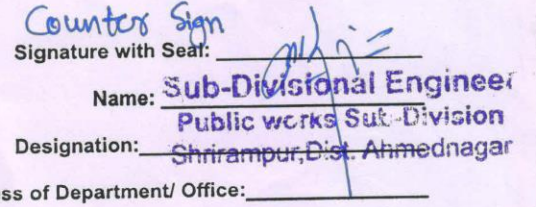 Counter Sign
Signature with Seal:
Name: Sub-Divisional Engineer
Public works Sub-Division
Designation: Shrirampur,Dist. Ahmednagar
ss of Department/ Office: